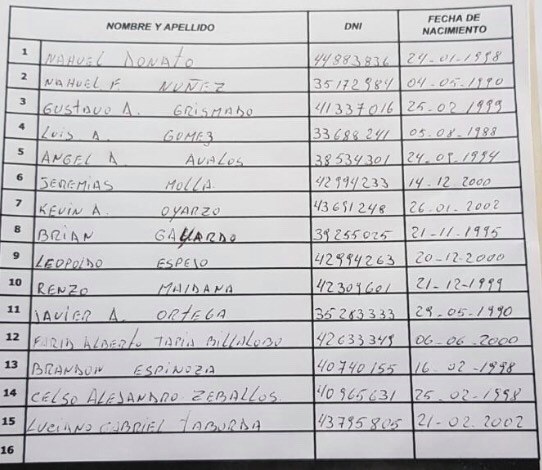 NOMBRE Y APELLIDO DNI FECHA DE NACIMIENTO
1 NAHUEL DONATO 44883836 24-01-1998
2 NAHUEL F. NUÑEZ 35172984 04-05-1990
3 GUSTAVO A. GRISMADO 41337016 25-02 1999
4 LUIS A. GOMEZ 33688241 05-08-1988
5 ANGEL A. AVALOS 38534301 24-09-1994
6 JEREMIAS MOLLA 42994233 14-12-2000
7 KEVIN A. OYARZO 43691248 26-01-2002
8 BRIAN GALLARDO 39255025 21-11-1995
9 LEOPOLDO ESPEJO 42994263 20-12-2000
10 RENZO MAIDANA 42309601 21-12-1999
11 JAVIER A. ORTEGA 35283333 29-05-1990
12 ALBERTO TAPIA BILLALOBO 42633349 06-06-2000
13 BRANDON ESPINOZA 40740155 16-02-1998
14 CELSO ALEJANDRO ZEBALLOS 40965631 25-02-1998
15 LUCIANO GABRIEL TABORDA 43795805 21-02-2002
16